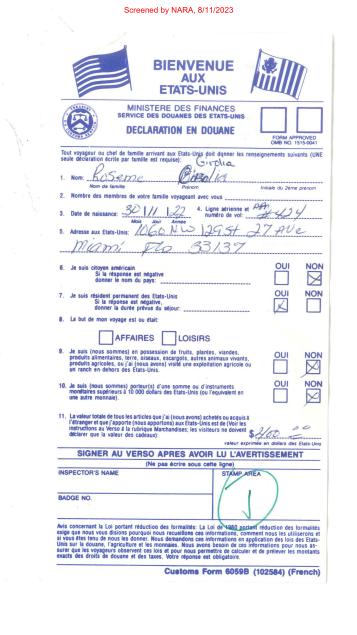 Screened by NARA, 8/11/2023
BIENVENUE
AUX
ETATS-UNIS
MINISTERE DES FINANCES
SERVICE DES DOUANES DES ETATS-UNIS
DECLARATION EN DOUANE
FORM APPROVED
OMB NO. 1515-0041
Tout voyageur ou chef de famille arrivant aux Etats-Unis doit donner les renseignements suivants (UNE
seule déclaration écrite par famille est requise):
1. Nom: Roseme
Nom de famille Prénom Initiale du 2ème prénom
2. Nombre des membres de votre famille voyageant avec vous
3. Date de naissance: 4. Ligne aérienne et
numéro de vol: #424
Mois Jour Année
5. Adresse aux Etats-Unis: 1060 NW 129 St 27 Ave
Miami Fla 33137
6. Je suis citoyen américain OUI NON
Si la réponse est négative
donner le nom du pays:
7. Je suis résident permanent des Etats-Unis OUI NON
Si la réponse est négative,
donner la durée prévue du séjour:
8. Le but de mon voyage est ou était:
AFFAIRES LOISIRS
9. Je suis (nous sommes) en possession de fruits, plantes, viandes, OUI NON
produits alimentaires, terre, oiseaux, escargots, autres animaux vivants,
produits agricoles, ou j'ai (nous avons) visité une exploitation agricole ou
un ranch en dehors des Etats-Unis.
10. Je suis (nous sommes) porteur(s) d'une somme ou d'instruments OUI NON
monétaires supérieurs à 10 000 dollars des Etats-Unis (ou l'equivalent en
une autre monnaie).
11. La valeur totale de tous les articles que j'ai (nous avons) achetés ou acquis à
l'étranger et que j'apporte (nous apportons) aux Etats-Unis est de (Voir les
instructions au Verso à la rubrique Marchandises; les visiteurs ne doivent
déclarer que la valeur des cadeaux): $
valeur exprimée en dollars des Etats-Unis
SIGNER AU VERSO APRES AVOIR LU L'AVERTISSEMENT
(Ne pas écrire sous cette ligne)
INSPECTOR'S NAME STAMP AREA
BADGE NO.
Avis concernant la Loi portant réduction des formalités: La Loi de 1980 portant réduction des formalités
exige que nous vous disions pourquoi nous recueillons ces informations, comment nous les utiliserons et
si vous êtes tenu de nous les donner. Nous demandons ces informations en application des lois des Etats-
Unis sur la douane, l'agriculture et les monnaies. Nous avons besoin de ces informations pour nous as-
surer que les voyageurs observent ces lois et pour nous permettre de calculer et de prélever les montants
exacts des droits de douane et des taxes. Votre réponse est obligatoire.
Customs Form 6059B (102584) (French)